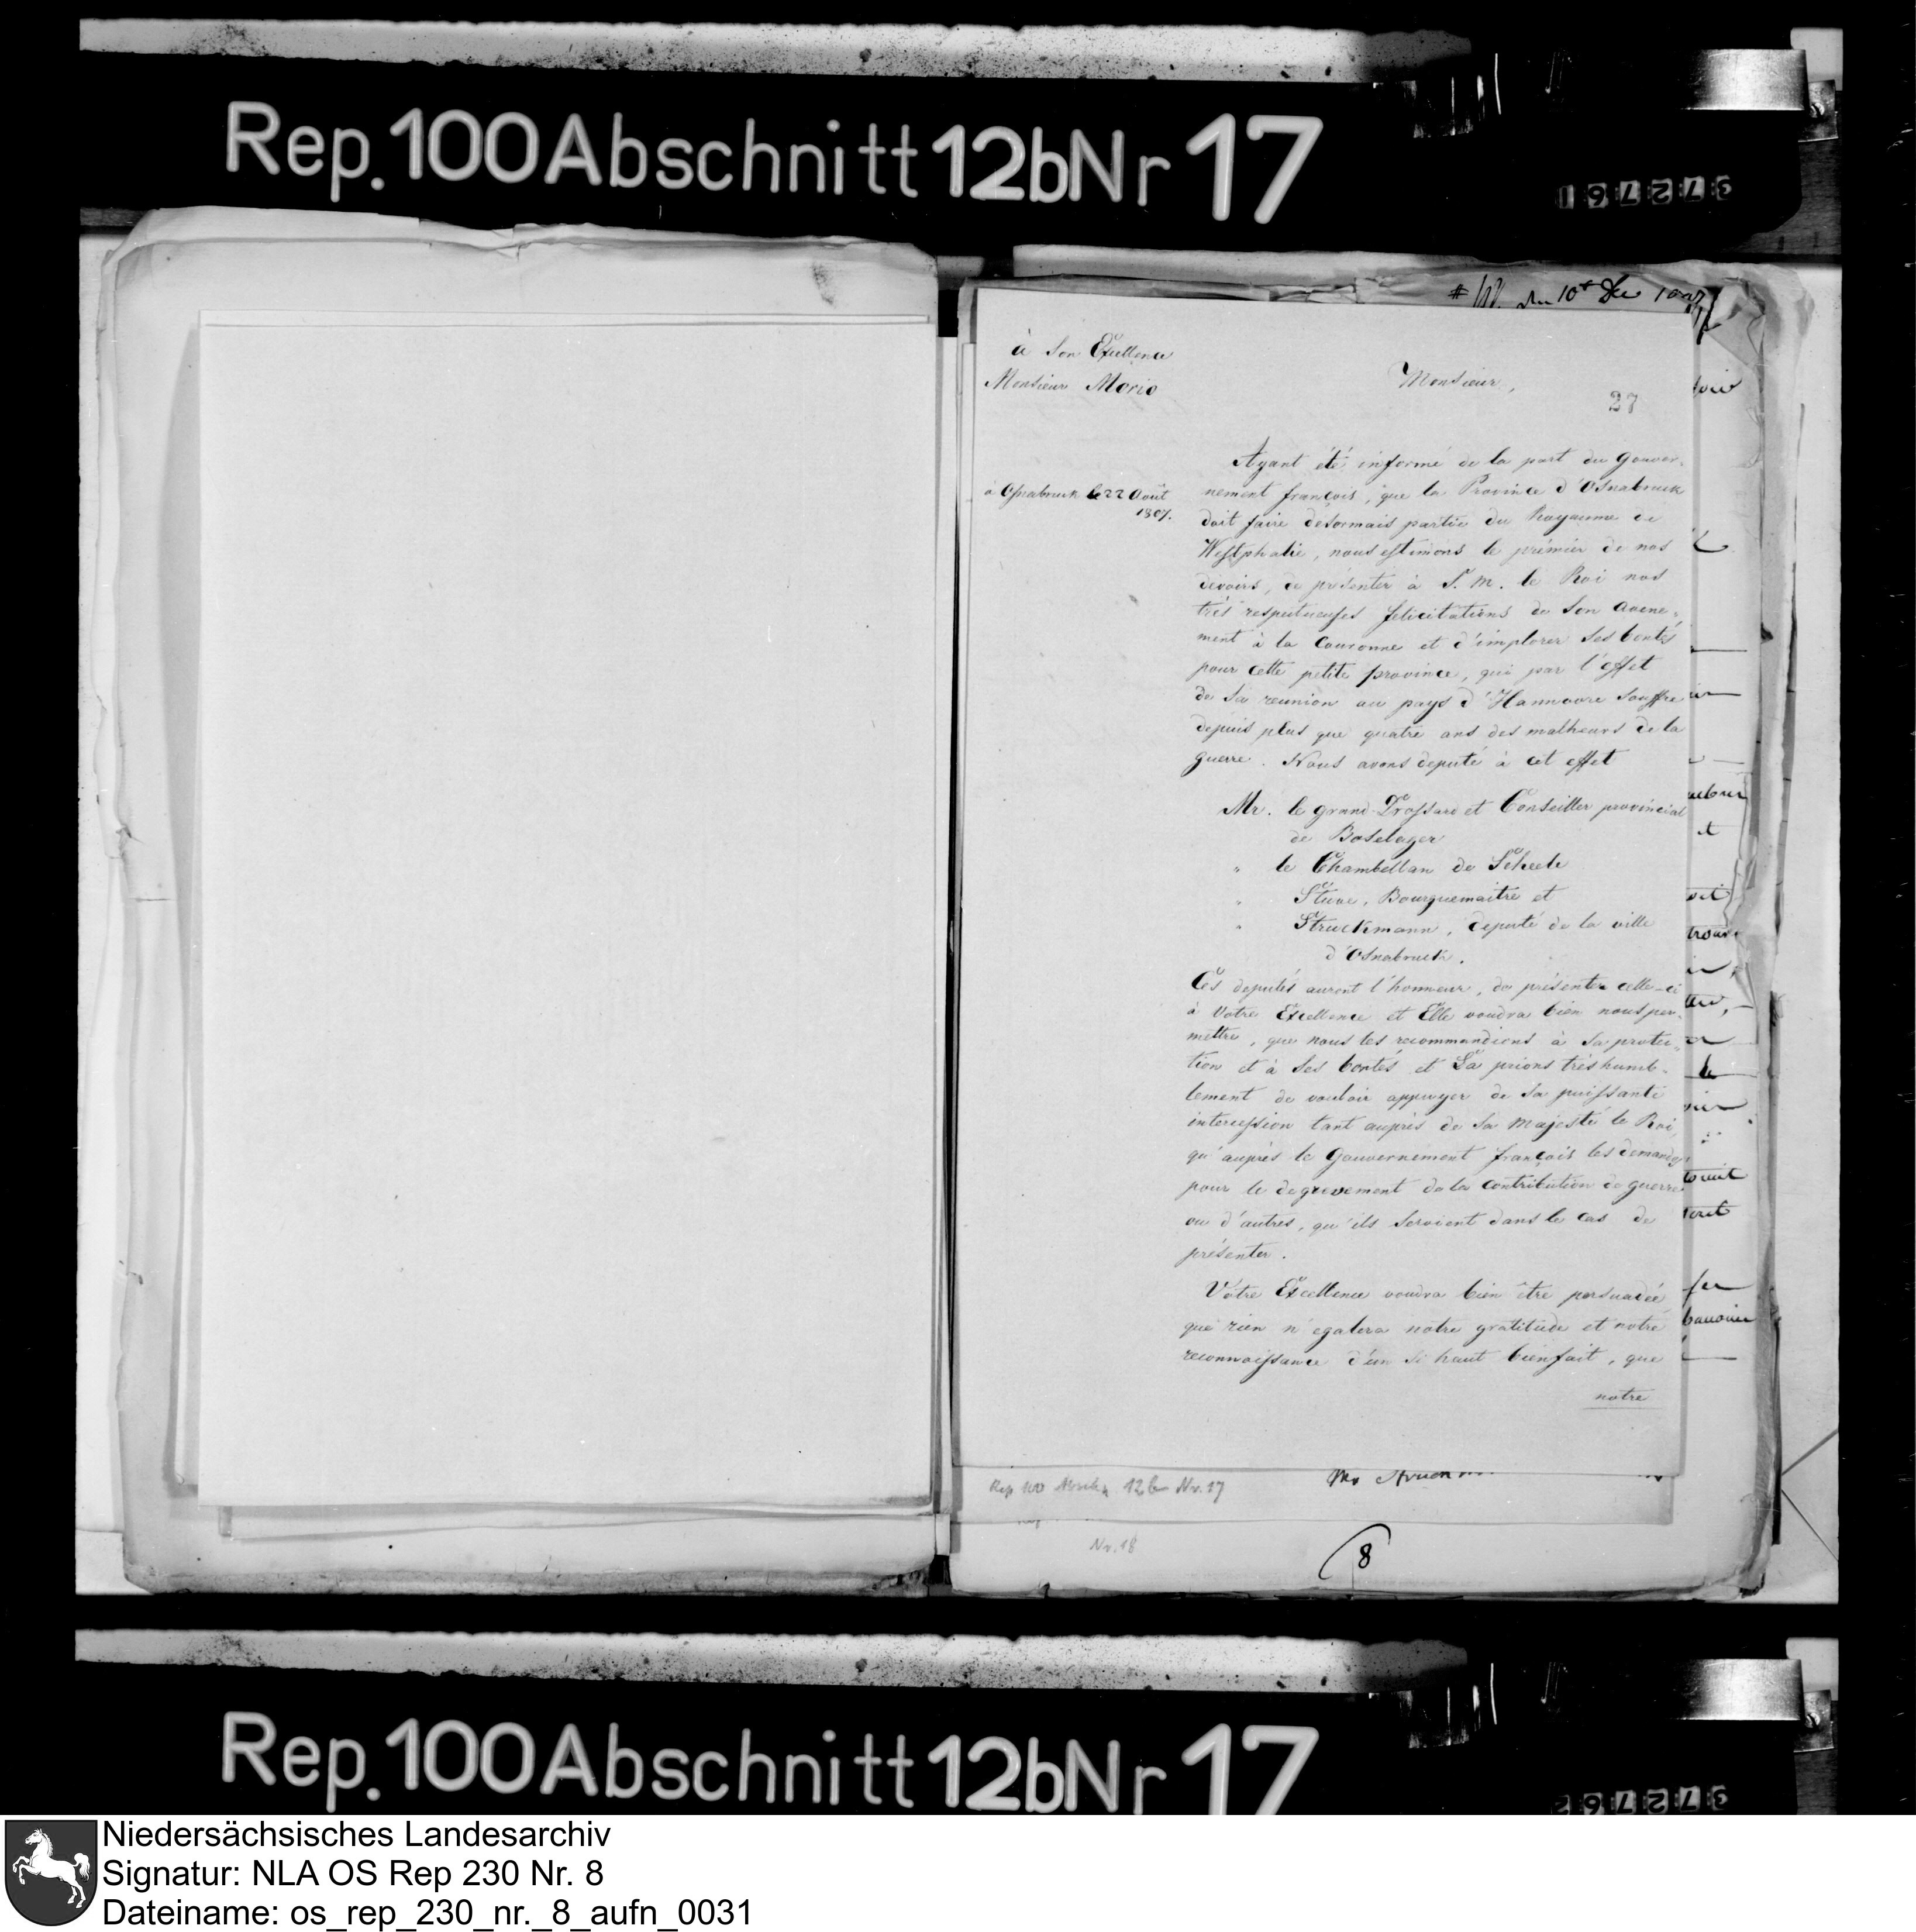 Rep. 100 Abschnitt 12b Nr 17
à Son Excellence
Monsieur Morio
Monsieur,
27
à Osnabruck le 22 Août
1807.
Ayant été informé de la part du Gouver-
nement françois, que la Province d'Osnabruck
doit faire desormais partie du Royaume de
Westphalie, nous estimons le prémier de nos
devoirs, de présenter à S. M. le Roi nos
trés respectueuses felicitations de Son avene-
ment à la Couronne et d'implorer Ses bontés
pour cette petite province, qui par l'effet
de Sa reunion au pays d'Hannovre souffre
depuis plus que quatre ans des malheurs de la
guerre. Nous avons deputé à cet effet
Mr. le grand-Drossard et Conseiller provincial
de Boselager
" le Chambellan de Schele
" Stüve, Bourguemaitre et
" Struckmann, deputé de la ville
d'Osnabruck.
Ces deputés auront l'honneur, de présenter celle-ci
à Votre Excellence et Elle voudra bien nous per-
mettre, que nous les recommandions à Sa protec-
tion et à Ses bontés et La prions trés humb-
lement de vouloir appuyer de Sa puissante
intercession tant auprés de Sa Majesté le Roi,
qu'auprés le Gouvernement françois les demandes
pour le degrevement de la Contribution de guerre
ou d'autres, qu'ils seroient dans le cas de
présenter.
Votre Excellence voudra bien être persuadée
que rien n'egalera notre gratitude et notre
reconnoissance d'un si haut bienfait, que
notre
Rep 100 Abschn. 12b Nr. 17
Nr. 18
8
Rep. 100 Abschnitt 12b Nr 17
Niedersächsisches Landesarchiv
Signatur: NLA OS Rep 230 Nr. 8
Dateiname: os_rep_230_nr._8_aufn_0031